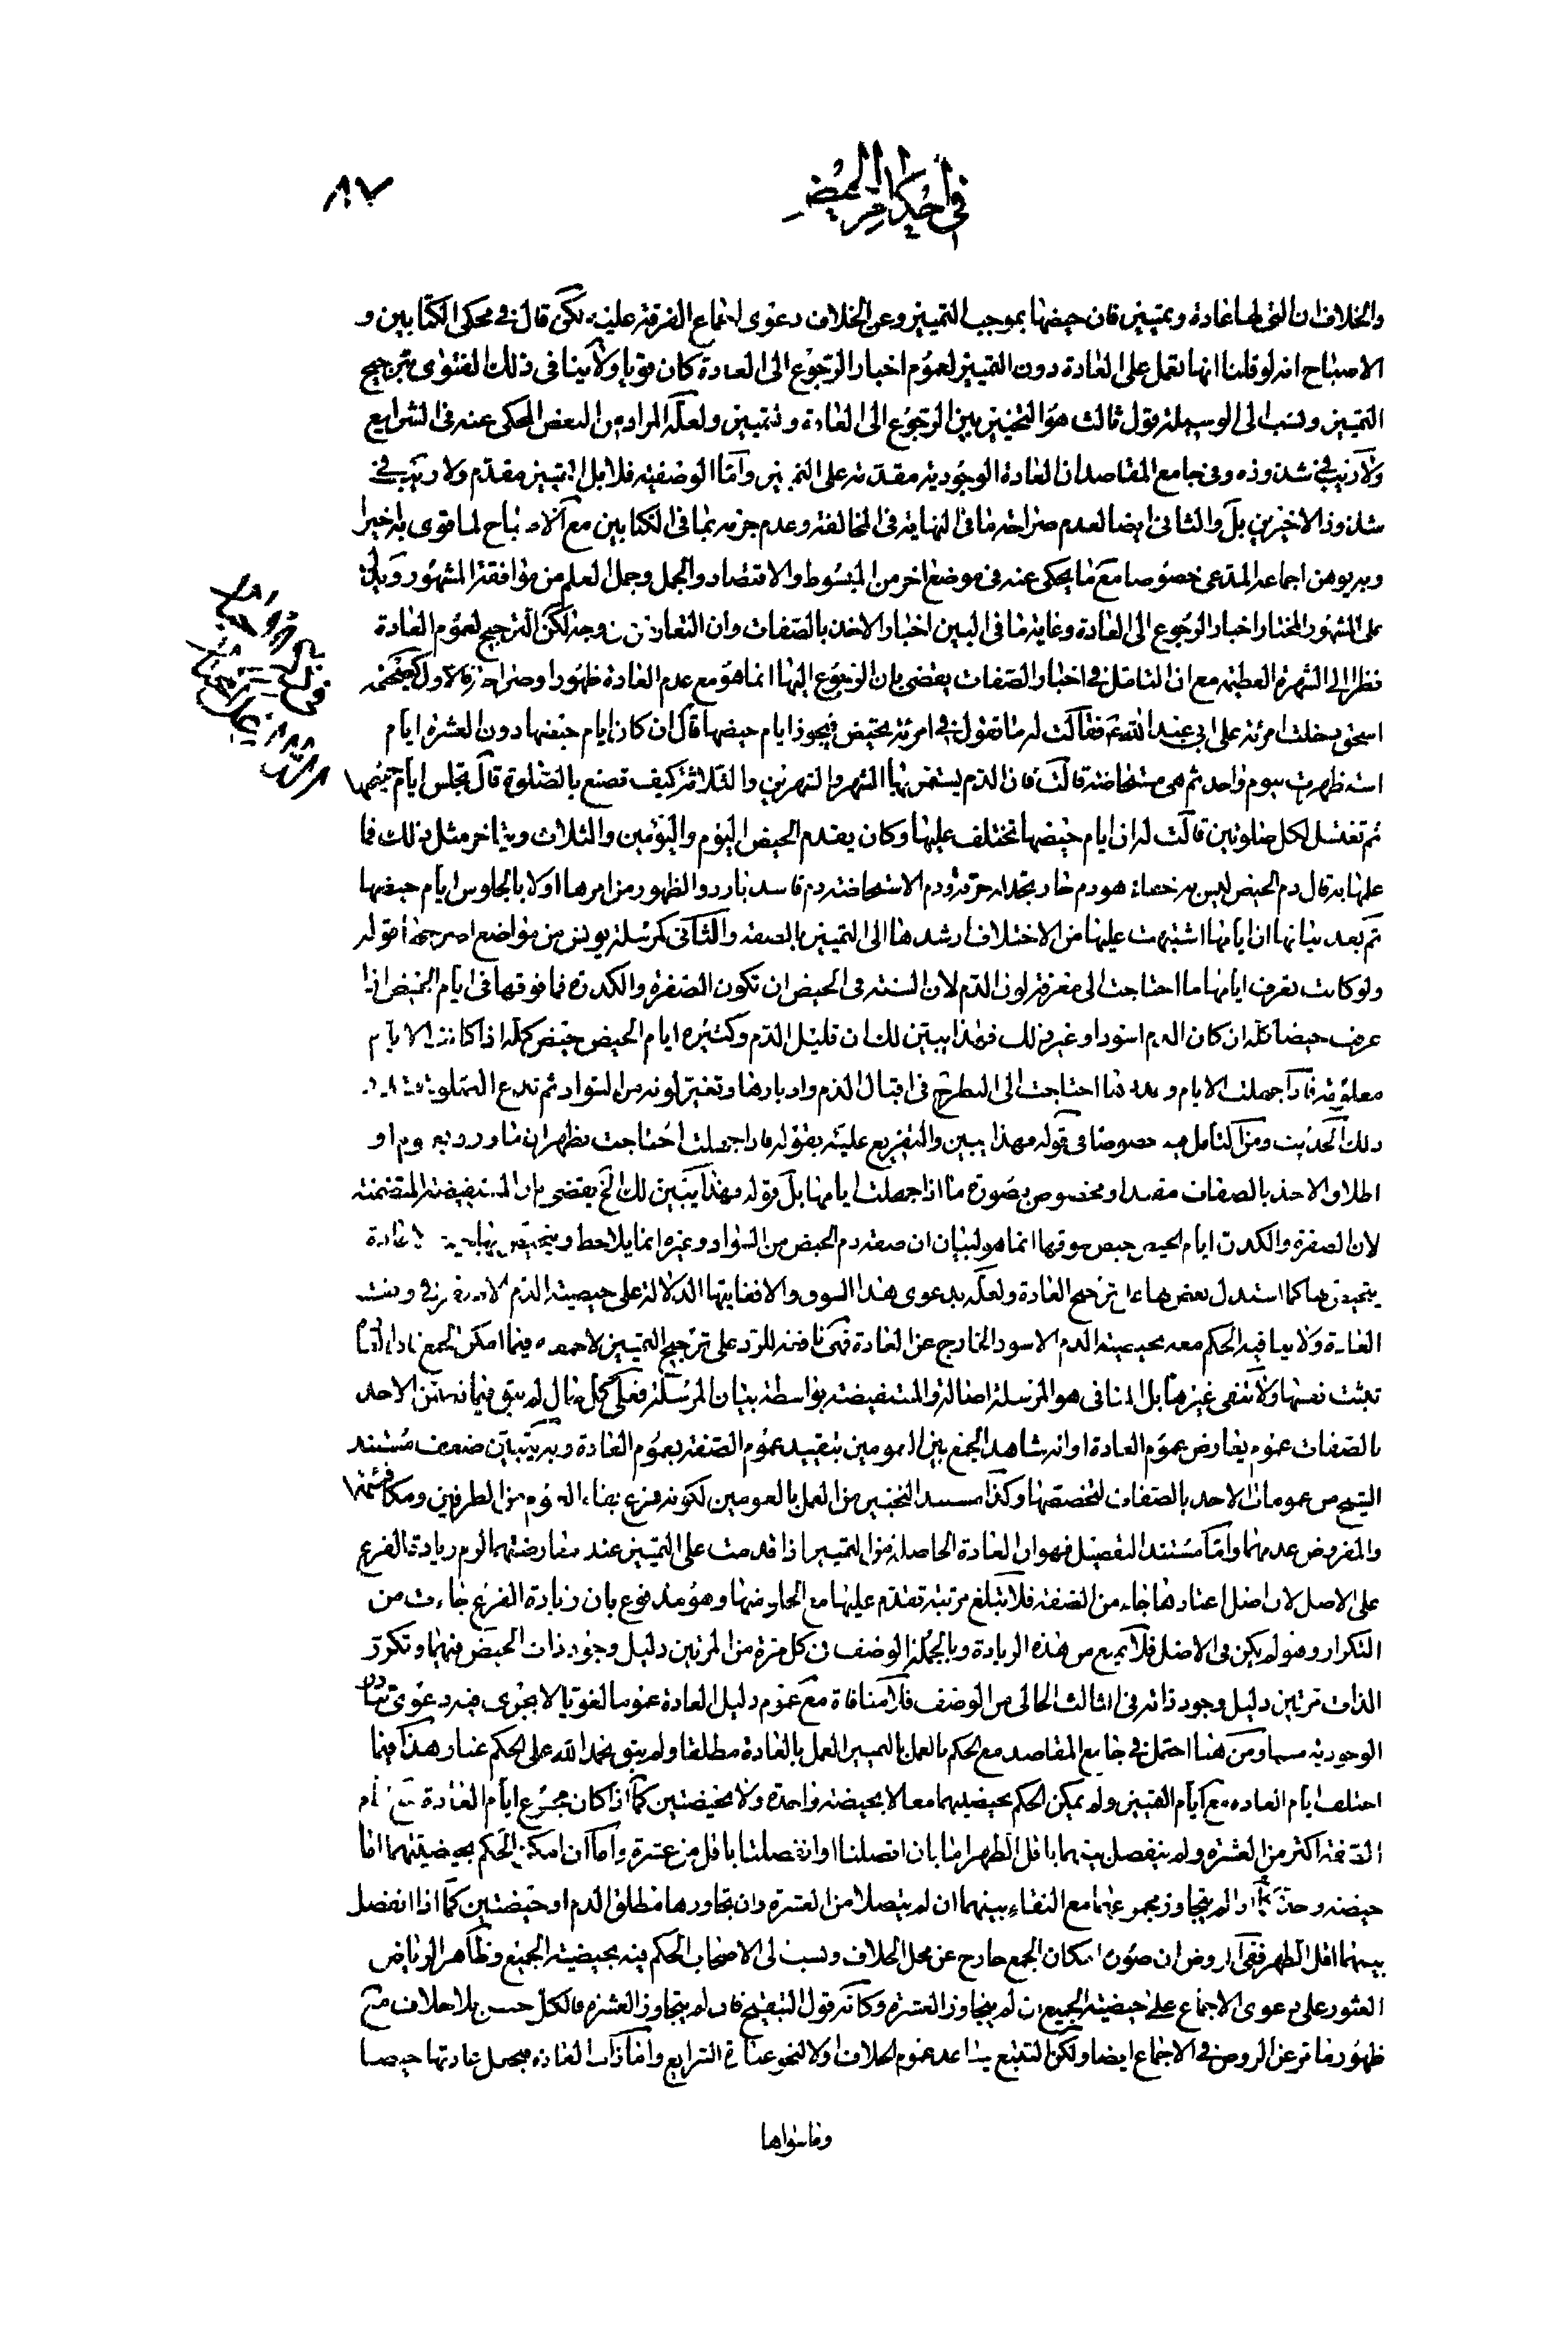 في أحكام الحيض
٨٧
والخلاف ان التي لها عادة وتمييز فان حيضها بموجب التمييز وعن الخلاف دعوى اجماع الفرقة عليه لكن قال في محكى الكتابين و
الاصباح انه لو قلنا انها تعمل على العادة دون التمييز لعموم اخبار الرجوع الى العادة كان قويا ولا ينافى ذلك الفتوى بترجيح
التمييز ونسب الى الوسيلة قول ثالث هو التخيير بين الرجوع الى العادة والتمييز ولعله المراد من البعض المحكى عنه في الشرايع
ولا ريب في شذوذه وفي جامع المقاصد ان العادة الوجودية مقدمة على التمييز وأما الوصفية فلا بل التمييز مقدم ولا ريب في
شذوذ الاخيرين بل والثاني ايضا لعدم صراحة ما في النهاية في المخالفة وعدم جزمه بما في الكتابين مع الاصباح لما قوى به اخيرا
وبه يوهن اجماعه المدعى خصوصا مع ما يحكى عنه في موضع اخر من المبسوط والاقتصاد والجمل وجمل العلم من موافقة المشهور ويدل
على المشهور المختار اخبار الرجوع الى العادة وغاية ما في البين اخبار الاخذ بالصفات وان التعارض من وجه لكن الترجيح لعموم العادة
نظرا الى الشهرة العظيمة مع ان التامل في اخبار الصفات يقضى بان الرجوع اليها انما هو مع عدم العادة ظهورا وصراحة فالاول كصحيحة
اسحق دخلت امرئة على ابي عبد الله ع فقالت له ما تقول في امرئة تحيض فيجوز ايام حيضها قال ان كان ايام حيضها دون العشرة ايام
استظهرت بيوم واحد ثم هي مستحاضة قالت فان الدم يستمر بها الشهر والشهرين والثلاثة كيف تصنع بالصلوة قال تجلس ايام حيضها
ثم تغتسل لكل صلوتين قالت له ان ايام حيضها تختلف عليها وكان يقدم الحيض اليوم واليومين والثلاث ويتاخر مثل ذلك فما
علمها به قال دم الحيض ليس به خفاء هو دم حار تجد له حرقة ودم الاستحاضة دم فاسد بارد والظهور من امرها اولا بالجلوس ايام حيضها
ثم بعد بيانها ان ايامها اشتبهت عليها من الاختلاف ارشدها الى التمييز بالصفة والثاني كمرسلة يونس من مواضع اصرحها قوله
ولو كانت تعرف ايامها ما احتاجت الى معرفة لون الدم لان السنة في الحيض ان تكون الصفرة والكدرة فما فوقها في ايام الحيض اذا
عرف حيضا كله ان كان الدم اسود او غير ذلك فهذا يبين لك ان قليل الدم وكثيره ايام الحيض حيض كله اذا كانت الايام
معلومة فاذا جهلت الايام وعددها احتاجت الى النظر في اقبال الدم وادبارها وتغير لونه من السواد ثم تدع الصلوة
ذلك الحديث ومن التامل فيه خصوصا في قوله فهذا يبين والتفريع عليه بقوله فاذا جهلت احتاجت يظهر ان ما ورد
اطلاق الاخذ بالصفات مقيد او مخصوص بصورة ما اذا جهلت ايامها بل قوله فهذا يبين لك الخ يقضى بان المستفيضة المتضمنة
لان الصفرة والكدرة ايام الحيض حيض سوقها انما هو لبيان ان صفة دم الحيض من السواد وغيره انما يلاحظ
كما استدل بعض بها على ترجيح العادة ولعله بدعوى هذا السوق والا فغايتها الدلالة على حيضية الدم الاصفر في وقت
العادة ولا ينافيه الحكم معه بحيضية الدم الاسود الخارج عن العادة فهي نافعة للرد على ترجيح التمييز لا جمعه فيما امكن الجمع
تثبت نفسها ولا تنفى غيرها بل المنافى هو المرسلة اصالة والمستفيضة بواسطة بيان المرسلة فعلى كل حال لم يبق فيما تضمن الاخذ
بالصفات عموم يعارض عموم العادة او انه شاهد الجمع بين العمومين بتقييد عموم الصفة بعموم العادة وبه يتبين ضعف مستند
الشيخ من عمومات الاخذ بالصفات لتخصصها وكذا مستند التخيير من العمل بالعمومين لكونه فرع بقاء العموم من الطرفين ومكافئتهما
والمفروض عدمهما وأما مستند التفصيل فهو ان العادة الحاصلة من التمييز اذا قدمت على التمييز عند معارضتهما لزم زيادة الفرع
على الاصل لان اصل اعتبارها جاء من الصفة فلا تبلغ مرتبة تقدم عليها مع تعارضها وهو مدفوع بان زيادة الفرع جاءت من
التكرار وهو لم يكن في الاصل فلا يمنع من هذه الزيادة وبالجملة الوصف في كل مرة من المرتين دليل وجود ذات الحيض فيهما وتكرر
الذات مرتين دليل وجود ذاته في الثالث الخالى من الوصف فلا منافاة مع عموم دليل العادة عموما لغويا لا يجرى فيه دعوى تبادر
الوجودية منها ومن هنا احتمل في جامع المقاصد مع الحكم بالعمل بالتمييز العمل بالعادة مطلقا ولم يبق بحمد الله على الحكم غبار هذا فيما
اختلف ايام العادة مع ايام التمييز ولم يمكن الحكم بحيضيتهما معا لا بحيضة واحدة ولا بحيضتين كما اذا كان مجموع ايام العادة مع ايام
الصفة اكثر من العشرة ولم ينفصل بينهما باقل الطهر اما بان اتصلتا او انفصلتا باقل من عشرة وأما ان امكن الحكم بحيضيتهما اما
حيضة واحدة كما اذا لم يتجاوز مجموعهما مع النقاء بينهما ان لم يتصلا من العشرة وان تجاورها مطلق الدم او حيضتين كما اذا انفصل
بينهما اقل الطهر ففى الروض ان صورة امكان الجمع خارج عن محل الخلاف ونسب الى الاصحاب الحكم فيه بحيضية الجميع وظاهر الرياض
العثور على دعوى الاجماع على حيضية الجميع ان لم يتجاوز العشرة وكانه قول التنقيح فان لم يتجاوز العشرة فالكل حيض بلا خلاف مع
ظهور ما مر عن الروض في الاجماع ايضا ولكن التتبع يساعد عموم الخلاف ولا لنحو عبارة الشرايع وأما ذات العادة فتجعل عادتها حيضا
وما سواها